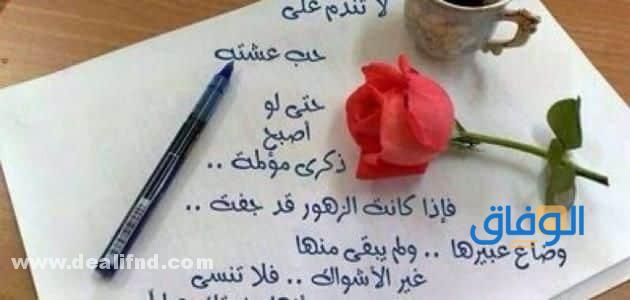 لا تندم على
حب عشته
حتى لو
اصبح
ذكرى مؤلمة ..
فإذا كانت الزهور قد جفت ..
وضاع عبيرها .. ولم يبقى منها
غير الأشواك .. فلا تنسى
الوفاق
www.dealifnd.com